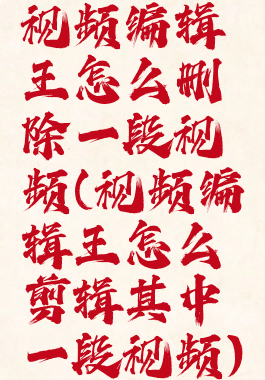 视频编辑
王怎么删
除一段视
频(视频编
辑王怎么
剪辑其中
一段视频)